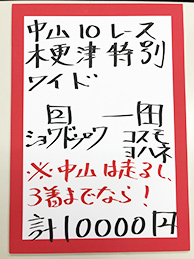 中山10レース
木更津特別
ワイド
回 ー 田
ショウドゥロウ コスモ
ヨハネ
※中山は走るし、
3着までなら!
計10000円